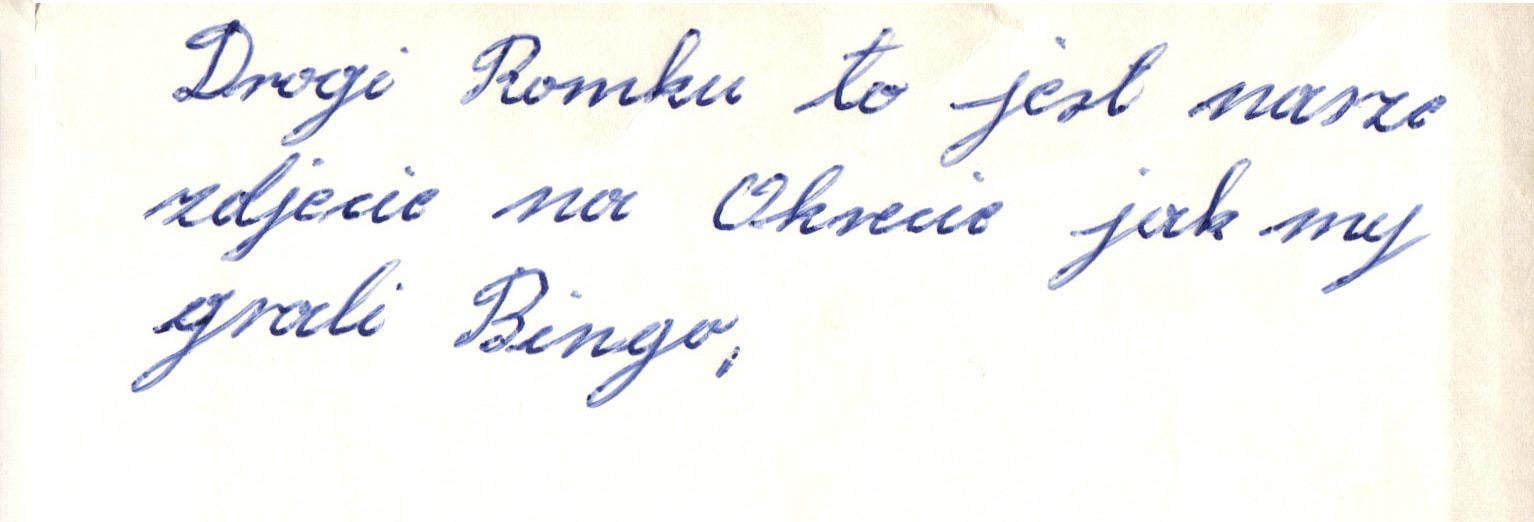 Drogi Romku to jest nasze
zdjecie na Okrecie jak my
grali Bingo,